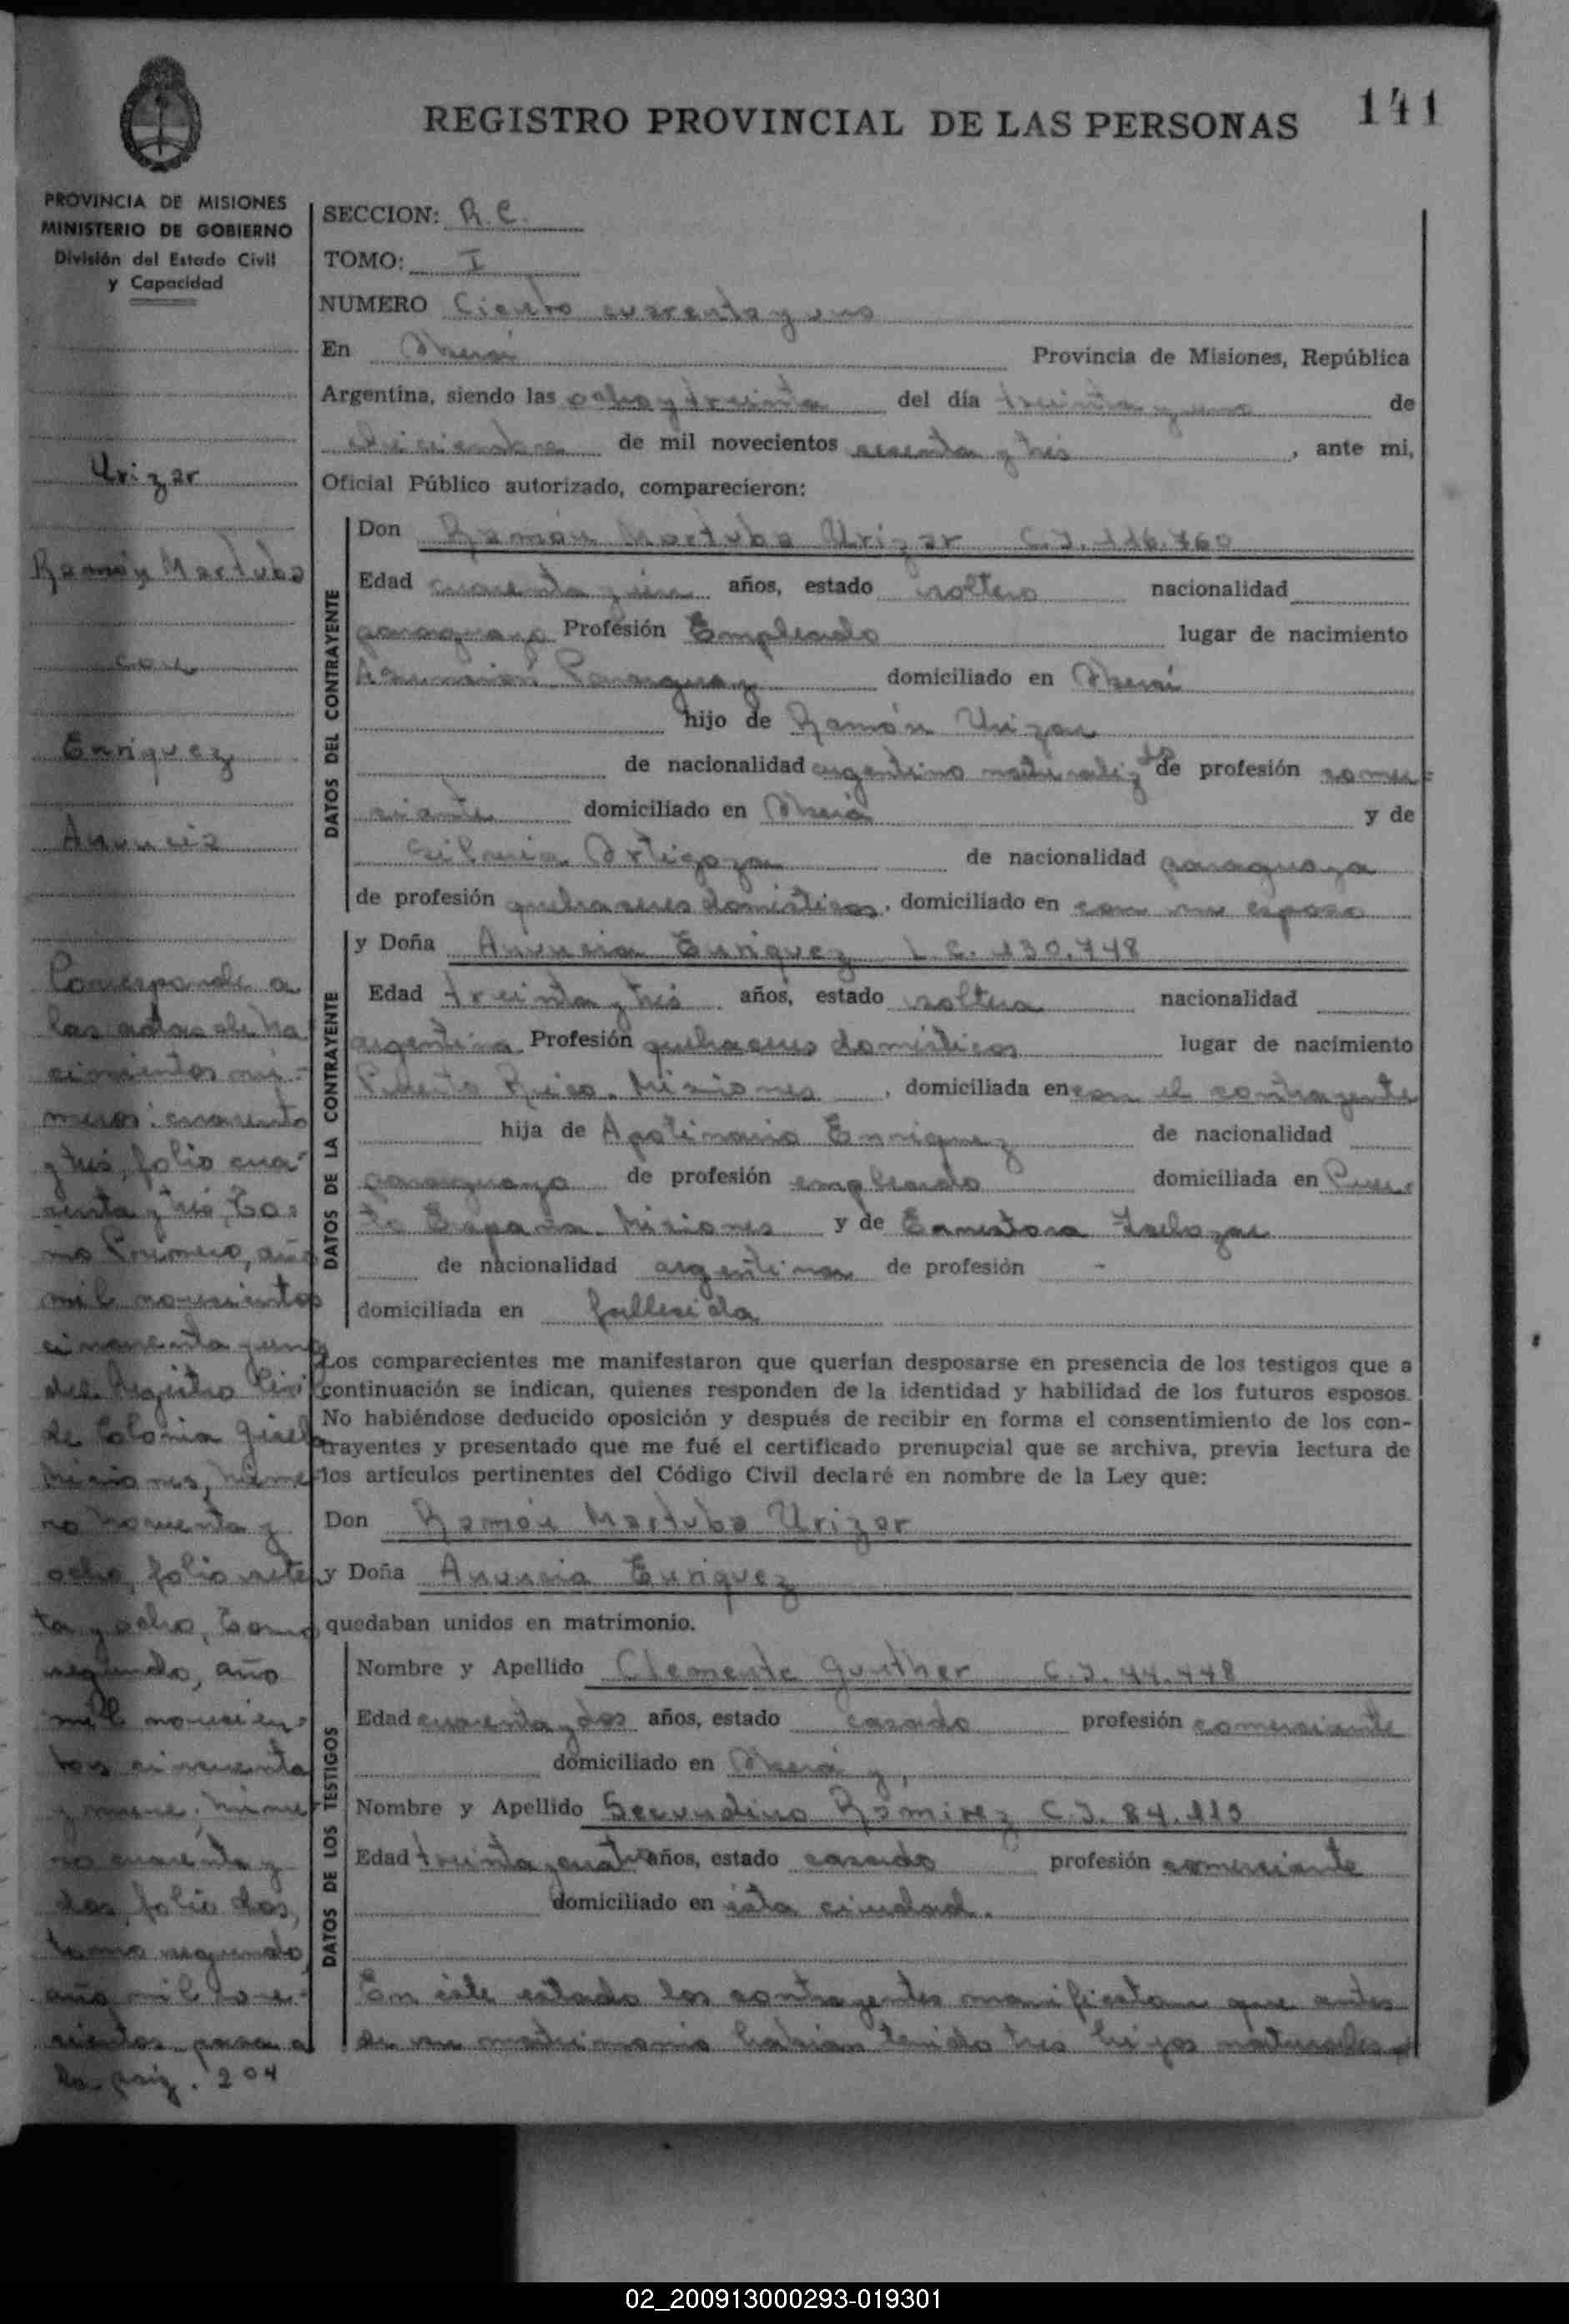 REGISTRO PROVINCIAL DE LAS PERSONAS
141
PROVINCIA DE MISIONES
MINISTERIO DE GOBIERNO
División del Estado Civil
y Capacidad
Urizar
Ramón Martubo
con
Enriquez
Anuncia
Corresponde a
las actas de na
cimientos nú-
meros: cuarenta
y tres, folio cua-
renta y tres, To-
mo Primero, año
mil novecientos
cincuenta y uno
del Registro Civil
de Colonia
Misiones, núme
ro noventa y
ocho, folio seten
ta y ocho, tomo
segundo, año
mil novecien-
tos cincuenta
y nueve; núme
ro cuarenta y
dos, folio dos,
tomo segundo,
año mil nove-
cientos pasa a
la pág. 204
SECCION: R.C.
TOMO: I
NUMERO Ciento cuarenta y uno
En Oberá Provincia de Misiones, República
Argentina, siendo las ocho y treinta del día treinta y uno de
diciembre de mil novecientos sesenta y tres, ante mi,
Oficial Público autorizado, comparecieron:
DATOS DEL CONTRAYENTE
Don Ramón Martubo Urizar C.I. 116.760
Edad cuarenta y un años, estado soltero nacionalidad
paraguaya Profesión Empleado lugar de nacimiento
Asunción Paraguay domiciliado en Oberá
hijo de Ramón Urizar
de nacionalidad argentino naturalizdo de profesión comer-
ciante domiciliado en Oberá y de
Ortigoza de nacionalidad paraguaya
de profesión quehaceres domésticos, domiciliado en con su esposo
DATOS DE LA CONTRAYENTE
y Doña Anuncia Enriquez L.C. 130.748
Edad treinta y tres años, estado soltera nacionalidad
argentina Profesión quehaceres domésticos lugar de nacimiento
Puerto Rico. Misiones, domiciliada en con el contrayente
hija de Apolinario Enriquez de nacionalidad
paraguaya de profesión empleado domiciliada en Puer-
to España. Misiones y de
de nacionalidad argentina de profesión -
domiciliada en fallecida
Los comparecientes me manifestaron que querían desposarse en presencia de los testigos que a
continuación se indican, quienes responden de la identidad y habilidad de los futuros esposos.
No habiéndose deducido oposición y después de recibir en forma el consentimiento de los con-
trayentes y presentado que me fué el certificado prenupcial que se archiva, previa lectura de
los artículos pertinentes del Código Civil declaré en nombre de la Ley que:
Don Ramón Martubo Urizar
y Doña Anuncia Enriquez
quedaban unidos en matrimonio.
DATOS DE LOS TESTIGOS
Nombre y Apellido Clemente Gunther C.I. 44.448
Edad cuarenta y dos años, estado casado profesión comerciante
domiciliado en Oberá y,
Nombre y Apellido Secundino Ramirez C.I. 84.113
Edad treinta y cuatro años, estado casado profesión comerciante
domiciliado en esta ciudad.
En este estado los contrayentes manifiestan que antes
de su matrimonio habían tenido tres hijos naturales
02_200913000293-019301